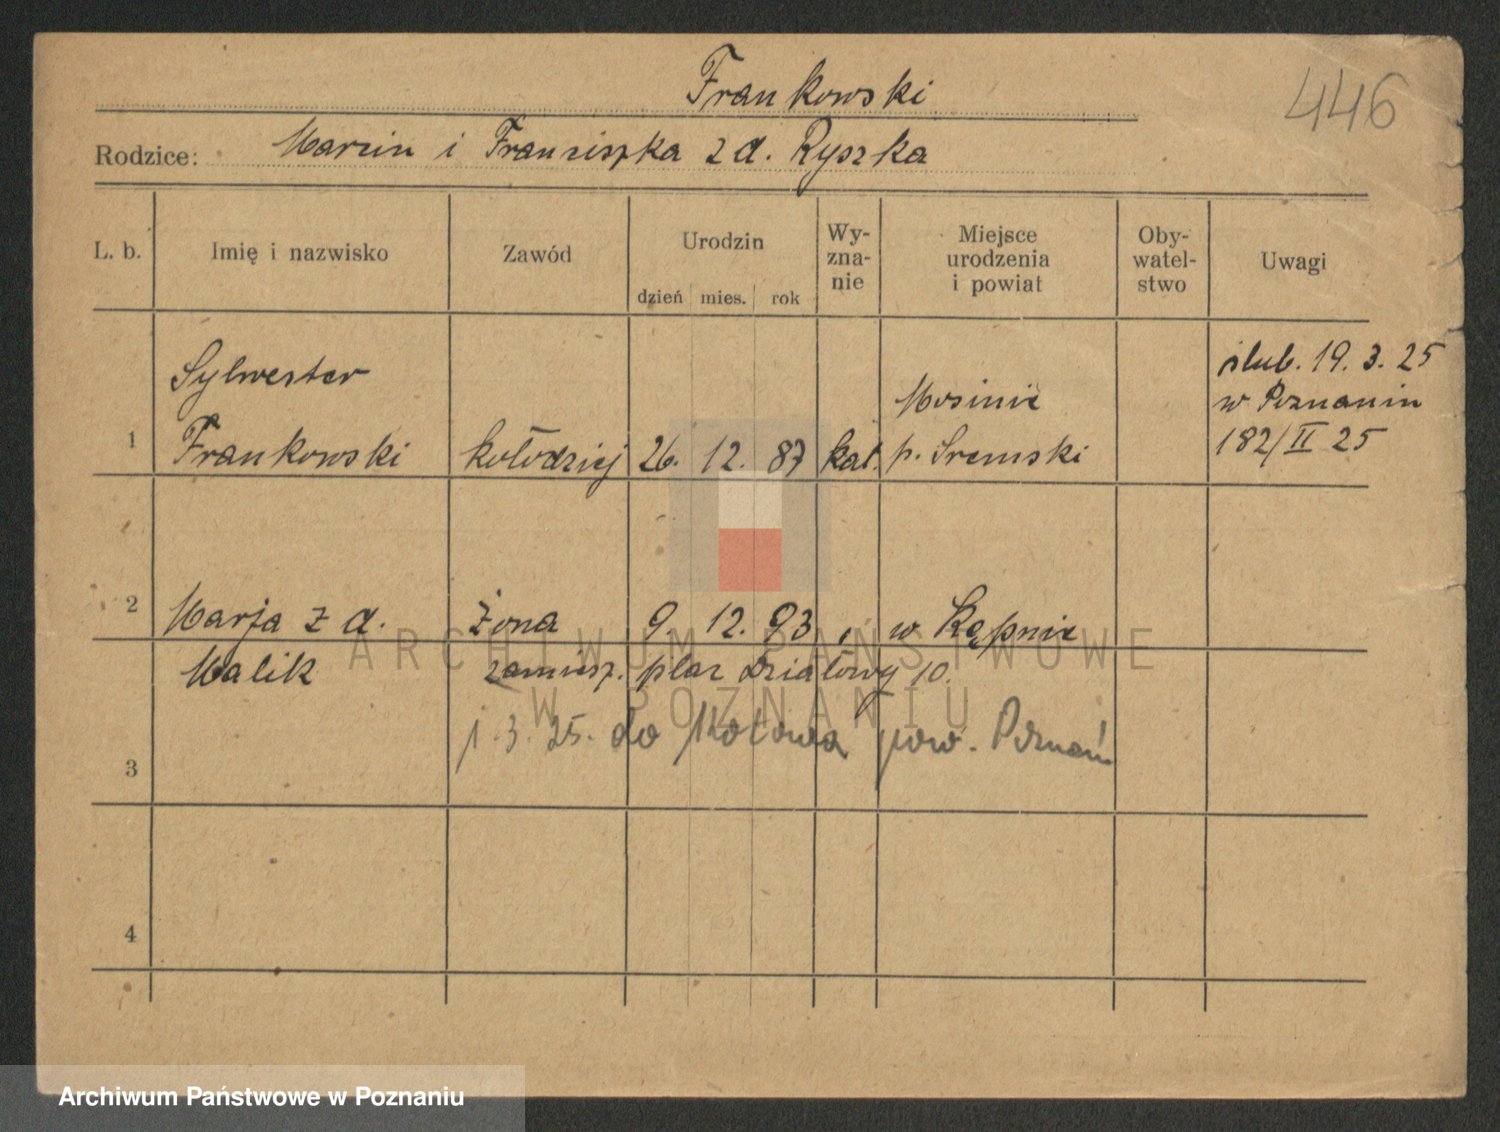 Frankowski
446
Rodzice: Marcin i Franciszka z d. Ryszka
L. b. Imię i nazwisko Zawód Urodzin dzień mies. rok Wy-zna-nie Miejsce urodzenia i powiat Oby-watel-stwo Uwagi
1 Sylwester Frankowski kołodziej 26. 12. 87 kat. Mosinie p. Sremski
ślub. 19. 3. 25
w Poznaniu
182/II 25
2 Marja z d. żona 9. 12. 93 " w Kępnie
Malik zamiesz. plac Działowy 10.
1. 3. 25. do Kotowa pow. Poznań
3
4
ARCHIWUM PAŃSTWOWE
W POZNANIU
Archiwum Państwowe w Poznaniu